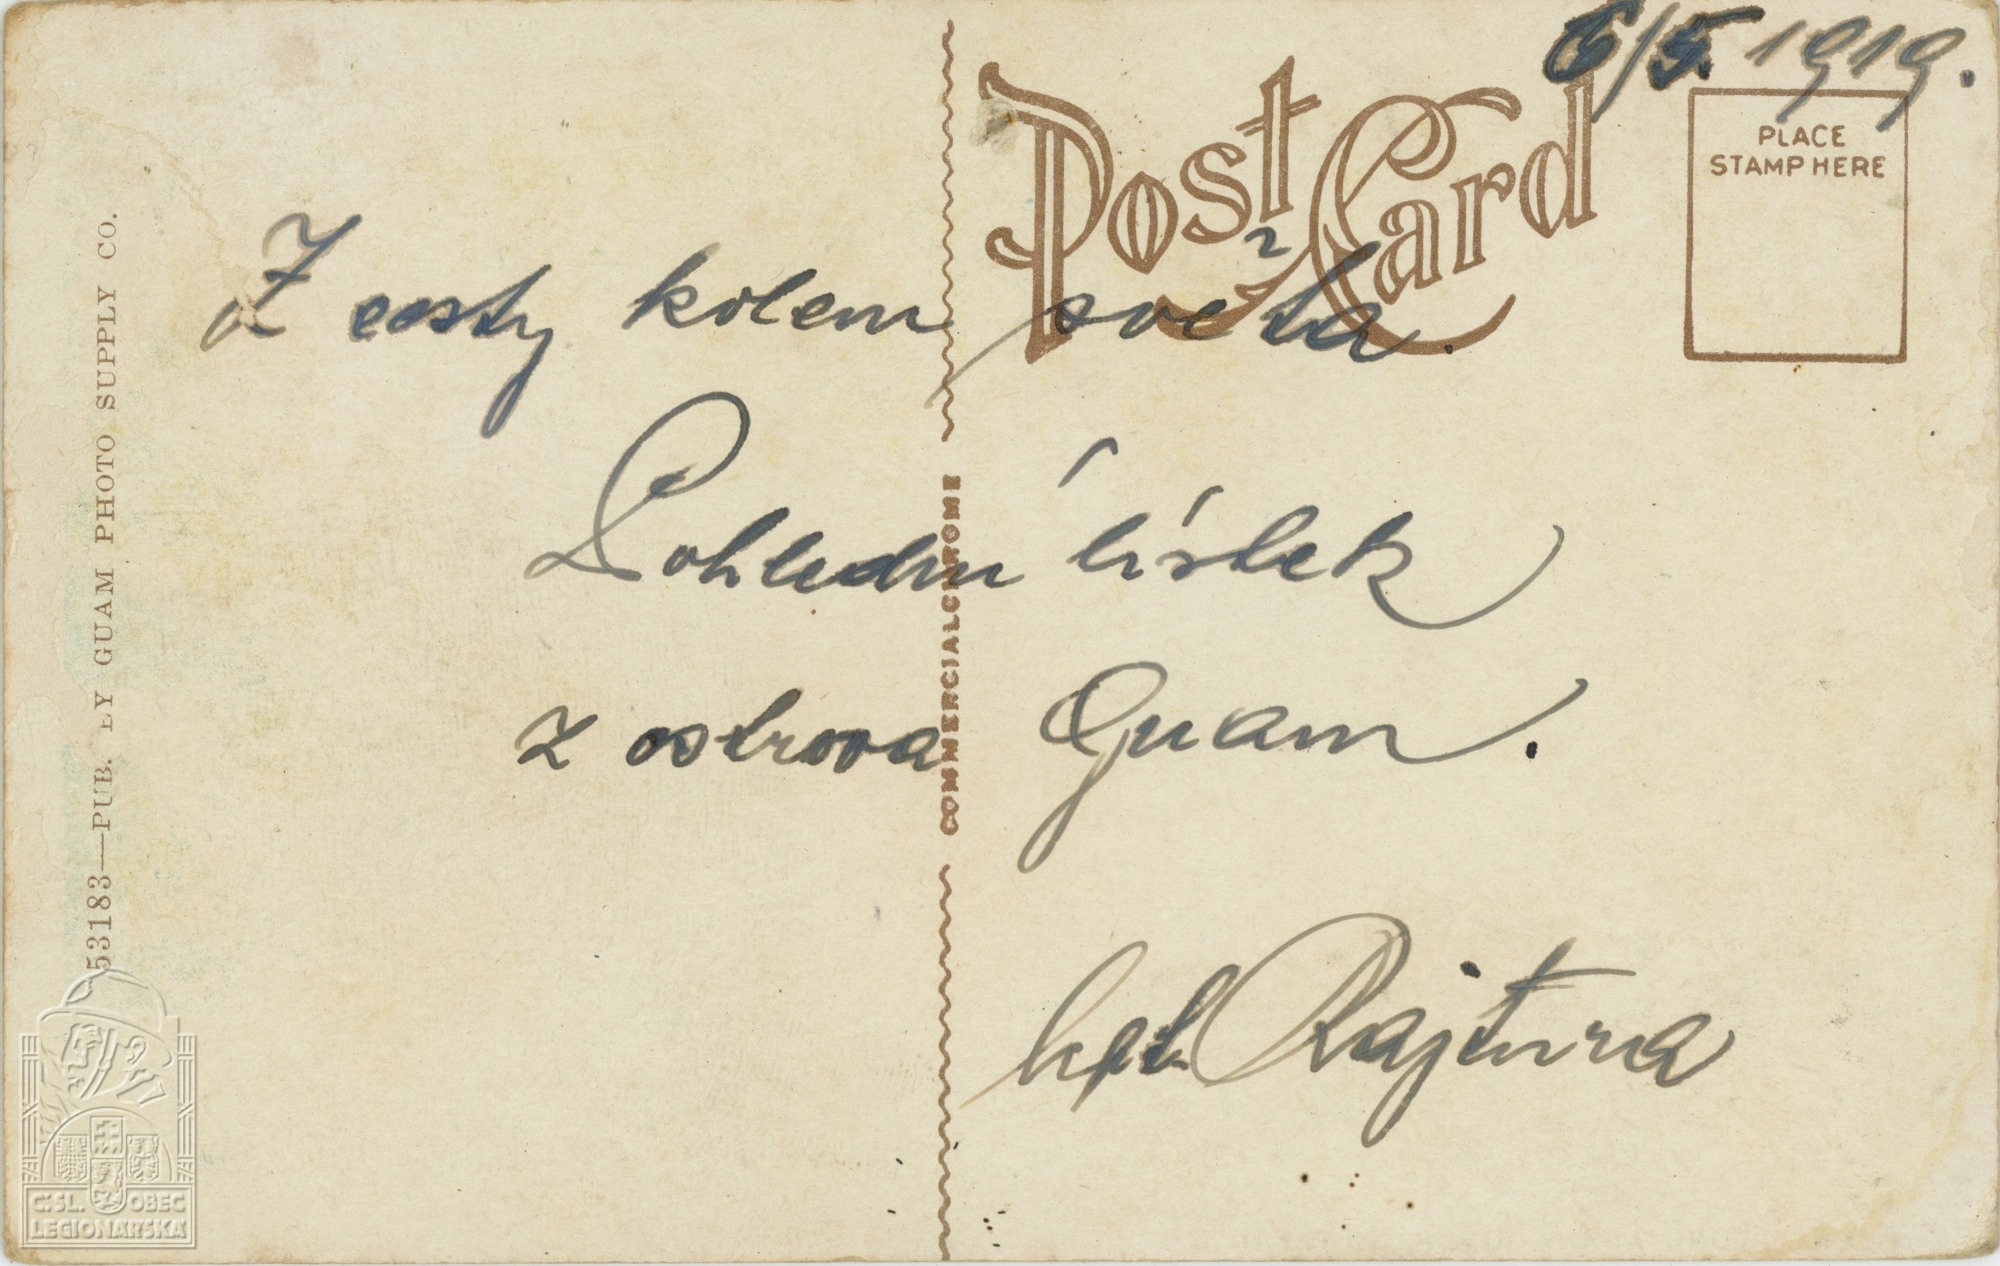 6/5. 1919.
Post Card
PLACE
STAMP HERE
Z cesty kolem světa.
Pohlední lístek
z ostrova Guam.
kpt. Rajtura
COMMERCIALCHROME
53183—PUB. BY GUAM PHOTO SUPPLY CO.
Č.SL. OBEC
LEGIONÁŘSKÁ